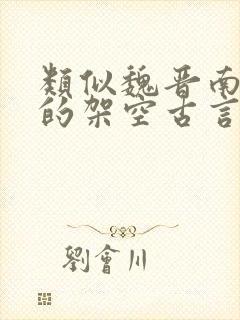 類似魏晉南
的架空古言
劉會川